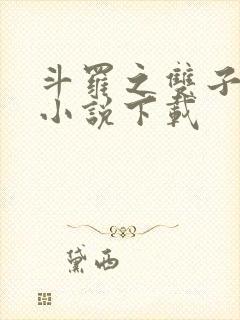 斗羅之雙子
小說下載
黛西